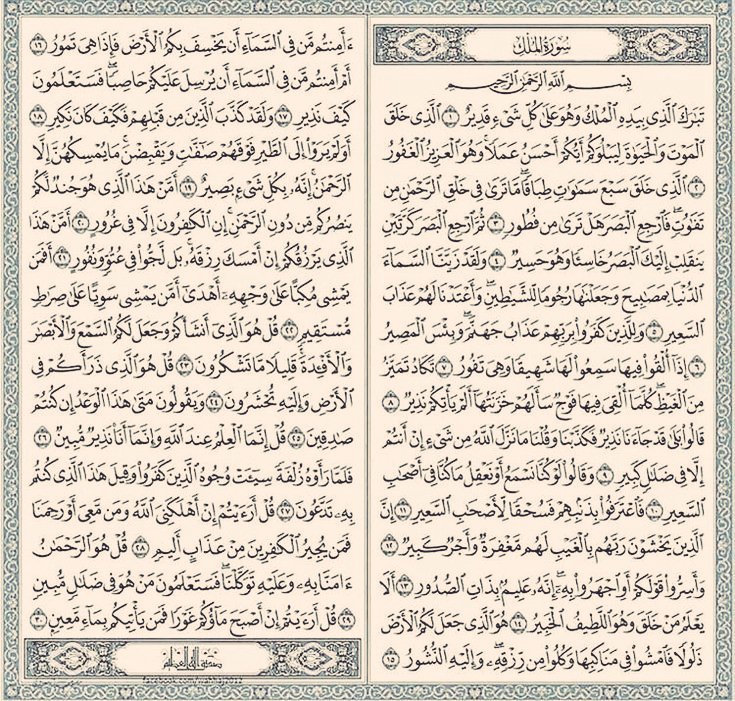 سُورَةُ المُلْكِ
بِسْمِ ٱللَّهِ ٱلرَّحْمَٰنِ ٱلرَّحِيمِ
تَبَٰرَكَ ٱلَّذِي بِيَدِهِ ٱلْمُلْكُ وَهُوَ عَلَىٰ كُلِّ شَيْءٍ قَدِيرٌ ١ ٱلَّذِي خَلَقَ
ٱلْمَوْتَ وَٱلْحَيَوٰةَ لِيَبْلُوَكُمْ أَيُّكُمْ أَحْسَنُ عَمَلًا ۚ وَهُوَ ٱلْعَزِيزُ ٱلْغَفُورُ
٢ ٱلَّذِي خَلَقَ سَبْعَ سَمَٰوَٰتٍ طِبَاقًا ۖ مَّا تَرَىٰ فِي خَلْقِ ٱلرَّحْمَٰنِ مِن
تَفَٰوُتٍ ۖ فَٱرْجِعِ ٱلْبَصَرَ هَلْ تَرَىٰ مِن فُطُورٍ ٣ ثُمَّ ٱرْجِعِ ٱلْبَصَرَ كَرَّتَيْنِ
يَنقَلِبْ إِلَيْكَ ٱلْبَصَرُ خَاسِئًا وَهُوَ حَسِيرٌ ٤ وَلَقَدْ زَيَّنَّا ٱلسَّمَآءَ
ٱلدُّنْيَا بِمَصَٰبِيحَ وَجَعَلْنَٰهَا رُجُومًا لِّلشَّيَٰطِينِ ۖ وَأَعْتَدْنَا لَهُمْ عَذَابَ
ٱلسَّعِيرِ ٥ وَلِلَّذِينَ كَفَرُوا۟ بِرَبِّهِمْ عَذَابُ جَهَنَّمَ ۖ وَبِئْسَ ٱلْمَصِيرُ
٦ إِذَآ أُلْقُوا۟ فِيهَا سَمِعُوا۟ لَهَا شَهِيقًا وَهِيَ تَفُورُ ٧ تَكَادُ تَمَيَّزُ
مِنَ ٱلْغَيْظِ ۖ كُلَّمَآ أُلْقِيَ فِيهَا فَوْجٌ سَأَلَهُمْ خَزَنَتُهَآ أَلَمْ يَأْتِكُمْ نَذِيرٌ ٨
قَالُوا۟ بَلَىٰ قَدْ جَآءَنَا نَذِيرٌ فَكَذَّبْنَا وَقُلْنَا مَا نَزَّلَ ٱللَّهُ مِن شَيْءٍ إِنْ أَنتُمْ
إِلَّا فِي ضَلَٰلٍ كَبِيرٍ ٩ وَقَالُوا۟ لَوْ كُنَّا نَسْمَعُ أَوْ نَعْقِلُ مَا كُنَّا فِيٓ أَصْحَٰبِ
ٱلسَّعِيرِ ١٠ فَٱعْتَرَفُوا۟ بِذَنۢبِهِمْ فَسُحْقًا لِّأَصْحَٰبِ ٱلسَّعِيرِ ١١ إِنَّ
ٱلَّذِينَ يَخْشَوْنَ رَبَّهُم بِٱلْغَيْبِ لَهُم مَّغْفِرَةٌ وَأَجْرٌ كَبِيرٌ ١٢
وَأَسِرُّوا۟ قَوْلَكُمْ أَوِ ٱجْهَرُوا۟ بِهِۦٓ ۖ إِنَّهُۥ عَلِيمٌۢ بِذَاتِ ٱلصُّدُورِ ١٣ أَلَا
يَعْلَمُ مَنْ خَلَقَ وَهُوَ ٱللَّطِيفُ ٱلْخَبِيرُ ١٤ هُوَ ٱلَّذِي جَعَلَ لَكُمُ ٱلْأَرْضَ
ذَلُولًا فَٱمْشُوا۟ فِي مَنَاكِبِهَا وَكُلُوا۟ مِن رِّزْقِهِۦ ۖ وَإِلَيْهِ ٱلنُّشُورُ ١٥
ءَأَمِنتُم مَّن فِي ٱلسَّمَآءِ أَن يَخْسِفَ بِكُمُ ٱلْأَرْضَ فَإِذَا هِيَ تَمُورُ ١٦
أَمْ أَمِنتُم مَّن فِي ٱلسَّمَآءِ أَن يُرْسِلَ عَلَيْكُمْ حَاصِبًا ۖ فَسَتَعْلَمُونَ
كَيْفَ نَذِيرِ ١٧ وَلَقَدْ كَذَّبَ ٱلَّذِينَ مِن قَبْلِهِمْ فَكَيْفَ كَانَ نَكِيرِ ١٨
أَوَلَمْ يَرَوْا۟ إِلَى ٱلطَّيْرِ فَوْقَهُمْ صَٰٓفَّٰتٍ وَيَقْبِضْنَ ۚ مَا يُمْسِكُهُنَّ إِلَّا
ٱلرَّحْمَٰنُ ۚ إِنَّهُۥ بِكُلِّ شَيْءٍۭ بَصِيرٌ ١٩ أَمَّنْ هَٰذَا ٱلَّذِي هُوَ جُندٌ لَّكُمْ
يَنصُرُكُم مِّن دُونِ ٱلرَّحْمَٰنِ ۚ إِنِ ٱلْكَٰفِرُونَ إِلَّا فِي غُرُورٍ ٢٠ أَمَّنْ هَٰذَا
ٱلَّذِي يَرْزُقُكُمْ إِنْ أَمْسَكَ رِزْقَهُۥ ۚ بَل لَّجُّوا۟ فِي عُتُوٍّ وَنُفُورٍ ٢١ أَفَمَن
يَمْشِي مُكِبًّا عَلَىٰ وَجْهِهِۦٓ أَهْدَىٰٓ أَمَّن يَمْشِي سَوِيًّا عَلَىٰ صِرَٰطٍ
مُّسْتَقِيمٍ ٢٢ قُلْ هُوَ ٱلَّذِيٓ أَنشَأَكُمْ وَجَعَلَ لَكُمُ ٱلسَّمْعَ وَٱلْأَبْصَٰرَ
وَٱلْأَفْـِٔدَةَ ۖ قَلِيلًا مَّا تَشْكُرُونَ ٢٣ قُلْ هُوَ ٱلَّذِي ذَرَأَكُمْ فِي
ٱلْأَرْضِ وَإِلَيْهِ تُحْشَرُونَ ٢٤ وَيَقُولُونَ مَتَىٰ هَٰذَا ٱلْوَعْدُ إِن كُنتُمْ
صَٰدِقِينَ ٢٥ قُلْ إِنَّمَا ٱلْعِلْمُ عِندَ ٱللَّهِ وَإِنَّمَآ أَنَا۠ نَذِيرٌ مُّبِينٌ ٢٦
فَلَمَّا رَأَوْهُ زُلْفَةً سِيٓـَٔتْ وُجُوهُ ٱلَّذِينَ كَفَرُوا۟ وَقِيلَ هَٰذَا ٱلَّذِي كُنتُم
بِهِۦ تَدَّعُونَ ٢٧ قُلْ أَرَءَيْتُمْ إِنْ أَهْلَكَنِيَ ٱللَّهُ وَمَن مَّعِيَ أَوْ رَحِمَنَا
فَمَن يُجِيرُ ٱلْكَٰفِرِينَ مِنْ عَذَابٍ أَلِيمٍ ٢٨ قُلْ هُوَ ٱلرَّحْمَٰنُ
ءَامَنَّا بِهِۦ وَعَلَيْهِ تَوَكَّلْنَا ۖ فَسَتَعْلَمُونَ مَنْ هُوَ فِي ضَلَٰلٍ مُّبِينٍ
٢٩ قُلْ أَرَءَيْتُمْ إِنْ أَصْبَحَ مَآؤُكُمْ غَوْرًا فَمَن يَأْتِيكُم بِمَآءٍ مَّعِينٍۭ ٣٠
صدق الله العظيم
facebook.com/wahhaj2012